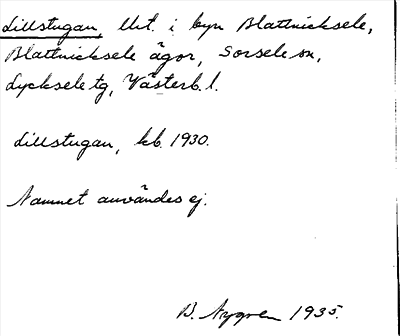 Lillstugan, lht. i byn Blattnicksele,
Blattnicksele ägor, Sorsele sn,
Lycksele tg, Västerb. l.
Lillstugan, kb. 1930.
Namnet användes ej.
B. Nygren 1935.